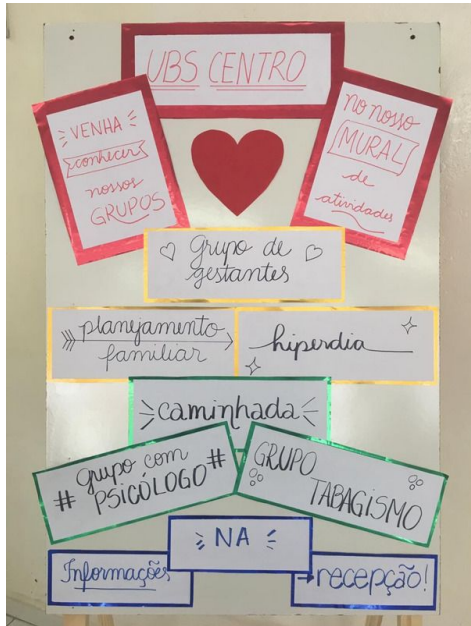 UBS CENTRO
VENHA
conhecer
nossos
GRUPOS
no nosso
MURAL
de
atividades
Grupo de
gestantes
planejamento
familiar
hiperdia
caminhada
# Grupo com #
PSICÓLOGO
GRUPO
TABAGISMO
Informações
NA
recepção!